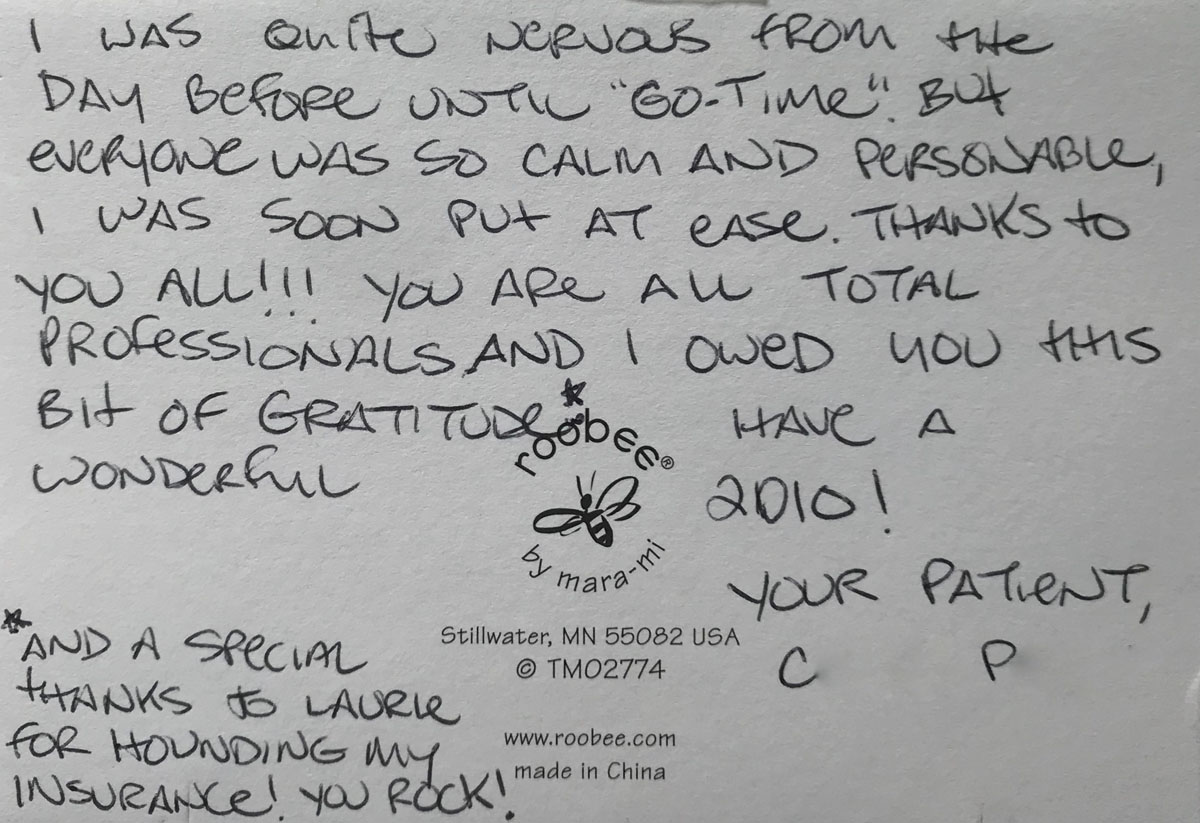 I WAS QuITe NeRVOUS FROM tHe
DAY BeFORe UNTIL "GO-TIMe". BUt
eVeRYONe WAS SO CALM AND PeRSONABLe,
I WAS SOON PUt AT eASe. THANKS to
YOU ALL!!! YOU ARe ALL TOTAL
PROFeSSIONALS AND I OWeD YOU tHIS
BIt OF GRATITUDe* HAVe A
WONDeRFUL 2010!
roobee®
by mara-mi
YOUR PATIeNT,
C P
*AND A SPeCIAL
tHANKS tO LAURIe
FOR HOUNDING MY
INSURANCe! YOU ROCK!
Stillwater, MN 55082 USA
© TM02774
www.roobee.com
made in China